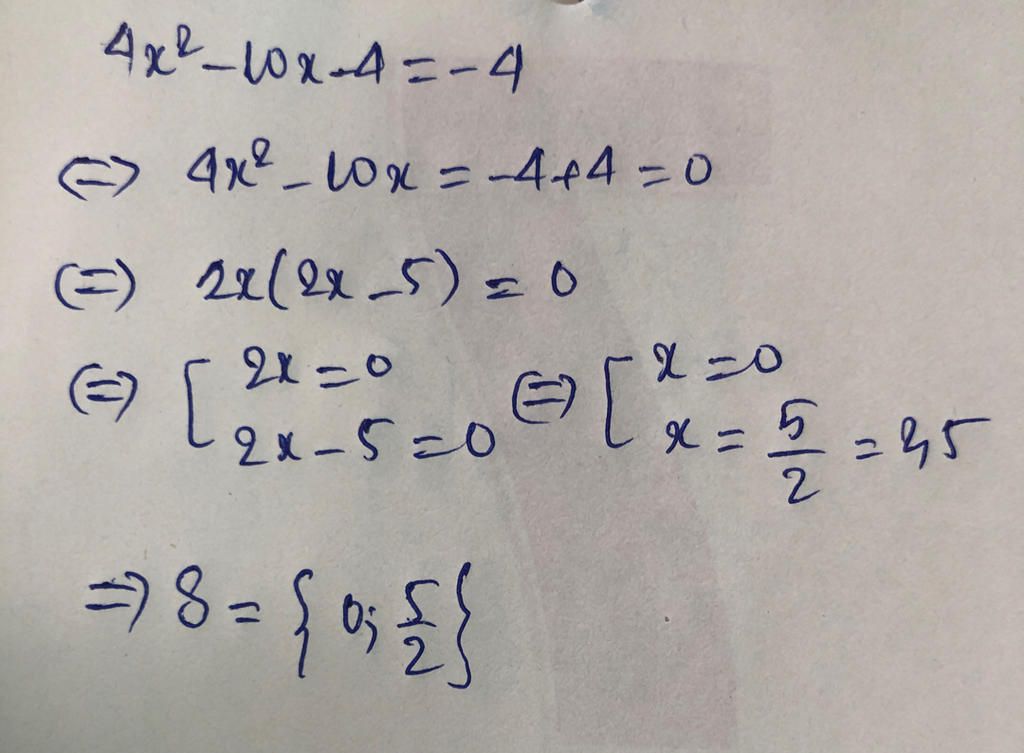 4x² - 10x - 4 = -4
<=> 4x² - 10x = -4 + 4 = 0
(=) 2x(2x - 5) = 0
(=) [ 2x = 0 (=) [ x = 0
2x - 5 = 0 x = 5/2 = 2,5
=> S = { 0; 5/2 }